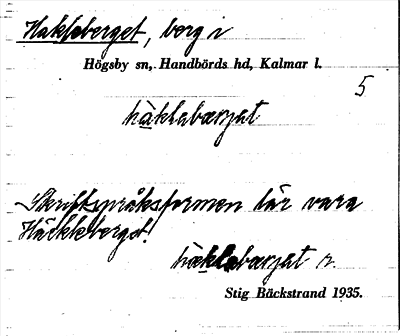 Hakleberget, berg i
Högsby sn, Handbörds hd, Kalmar l.
5
häklabærjat
Skriftspråksformen lär vara
Häckleberget.
häklabærjat n.
Stig Bäckstrand 1935.